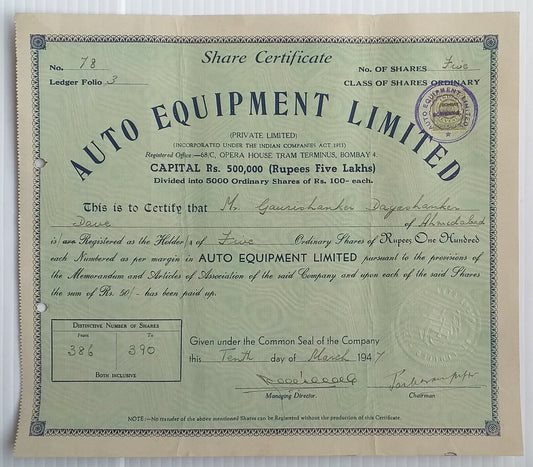 Share Certificate
No. 78
No. OF SHARES Five
Ledger Folio 3
CLASS OF SHARES ORDINARY
AUTO EQUIPMENT LIMITED
AUTO EQUIPMENT LIMITED
(PRIVATE LIMITED)
(INCORPORATED UNDER THE INDIAN COMPANIES ACT 1913)
Registered Office:—68/C, OPERA HOUSE TRAM TERMINUS, BOMBAY 4.
CAPITAL Rs. 500,000 (Rupees Five Lakhs)
Divided into 5000 Ordinary Shares of Rs. 100- each.
This is to Certify that Mr. Gaurishanker Dayashanker
Dave of Ahmedabad
is/are Registered as the Holder/s of Five Ordinary Shares of Rupees One Hundred
each Numbered as per margin in AUTO EQUIPMENT LIMITED pursuant to the provisions of
the Memorandum and Articles of Association of the said Company and upon each of the said Shares
the sum of Rs. 50/- has been paid up.
DISTINCTIVE NUMBER OF SHARES
From To
386 390
BOTH INCLUSIVE
Given under the Common Seal of the Company
this Tenth day of March 1947
Managing Director.
Chairman
NOTE:—No transfer of the above mentioned Shares can be Registered without the production of this Certificate.